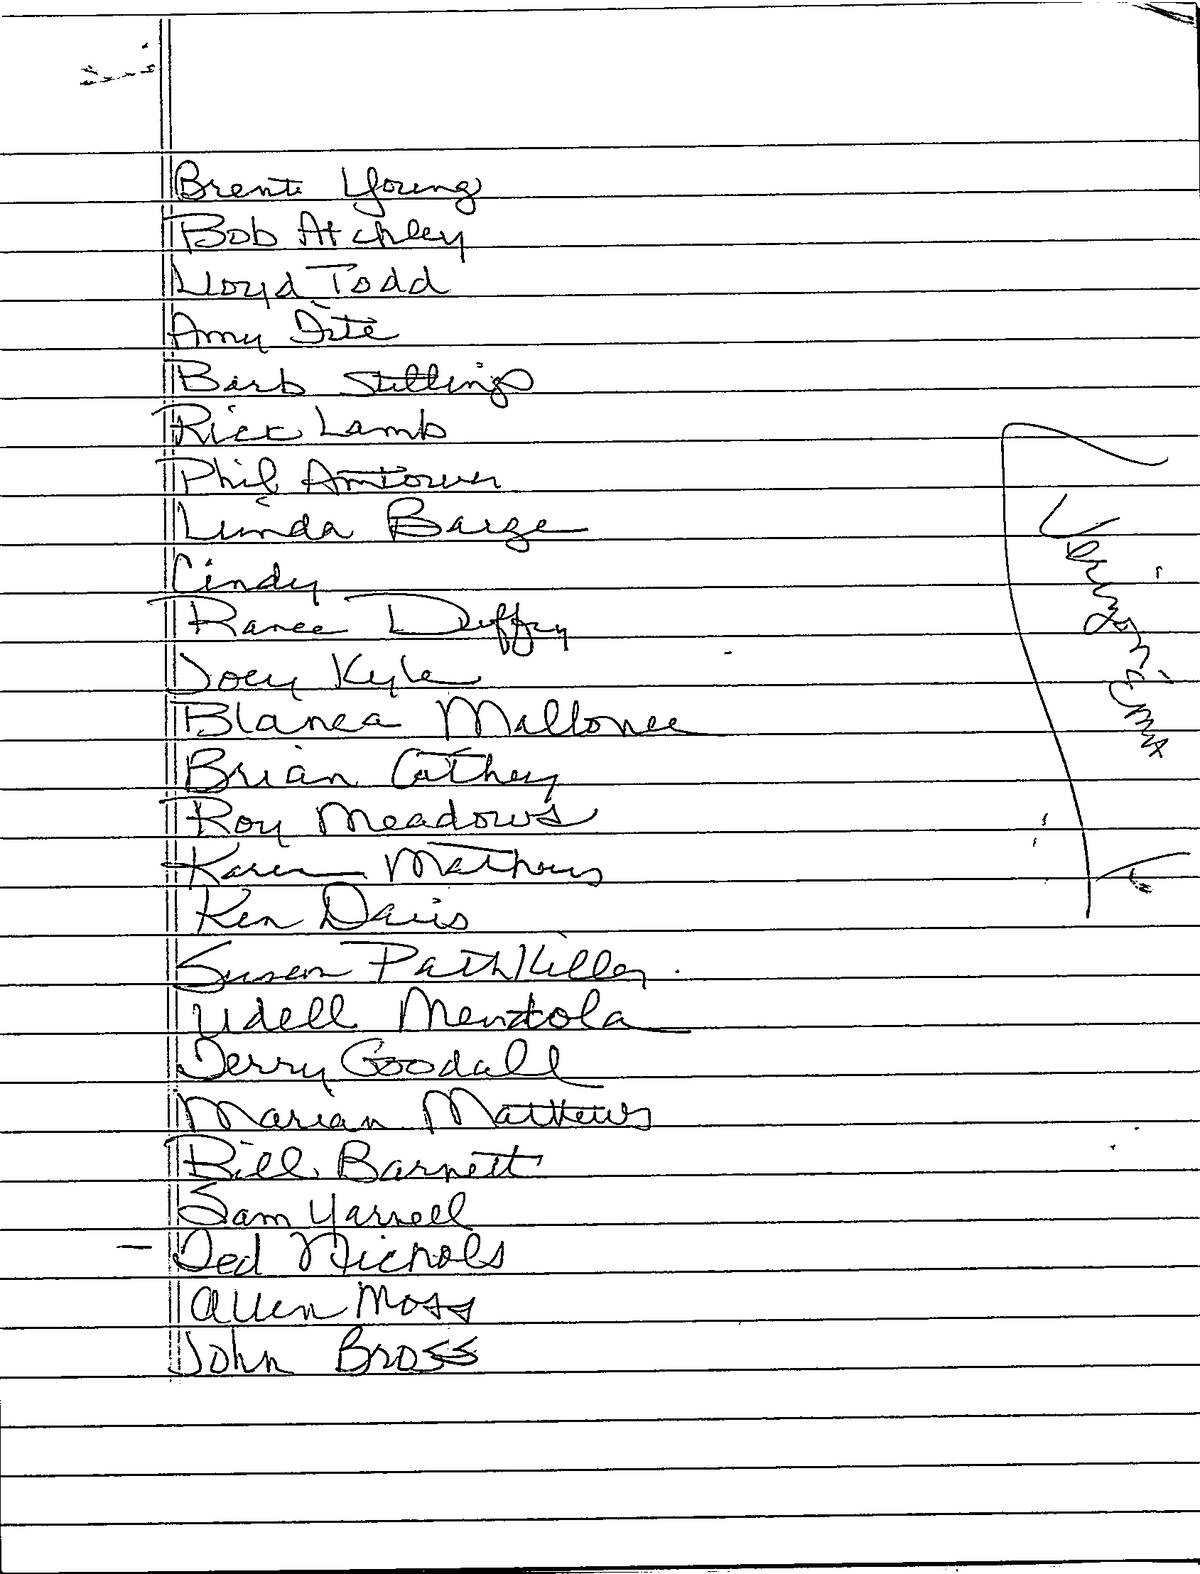 Brent Young
Bob Atchley
Lloyd Todd
Amy
Barb Stellings
Rick Lamb
Phil Amtower
Linda Barge
Cindy
Ranee Duffy
Joey Kyle
Blanca Mallonee
Brian Cathey
Roy Meadows
Karen Mathews
Ken Davis
Susen PathKiller
Udell Mendiola
Jerry Goodall
Marian Mathews
Bill Barnett
Sam Yarnell
– Ted Nichols
Allen Moss
John Bross
Verizon Emx